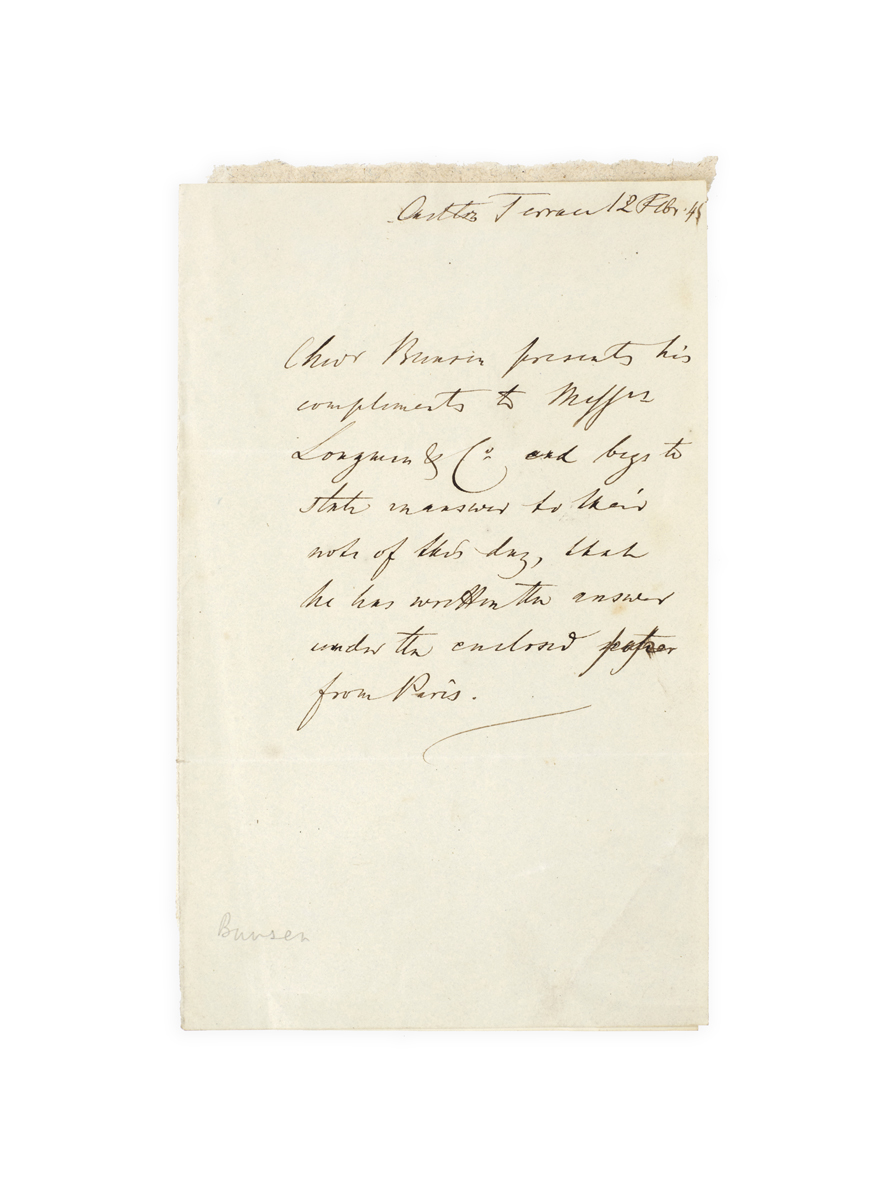 Carlton Terrace 12 Febr.
Chevr Bunsen presents his
compliments to Messrs
Longman & Co. and begs to
state in answer to their
note of this day, that
he has written the answer
under the enclosed paper
from Paris.
Bunsen